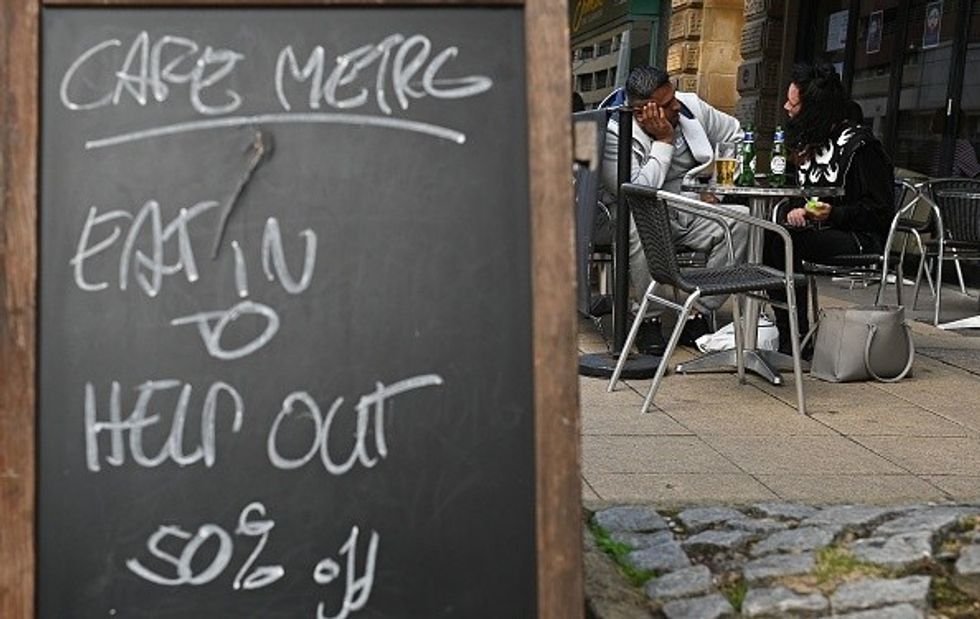 CAFE METRO
EAT IN
TO
HELP OUT
50% off